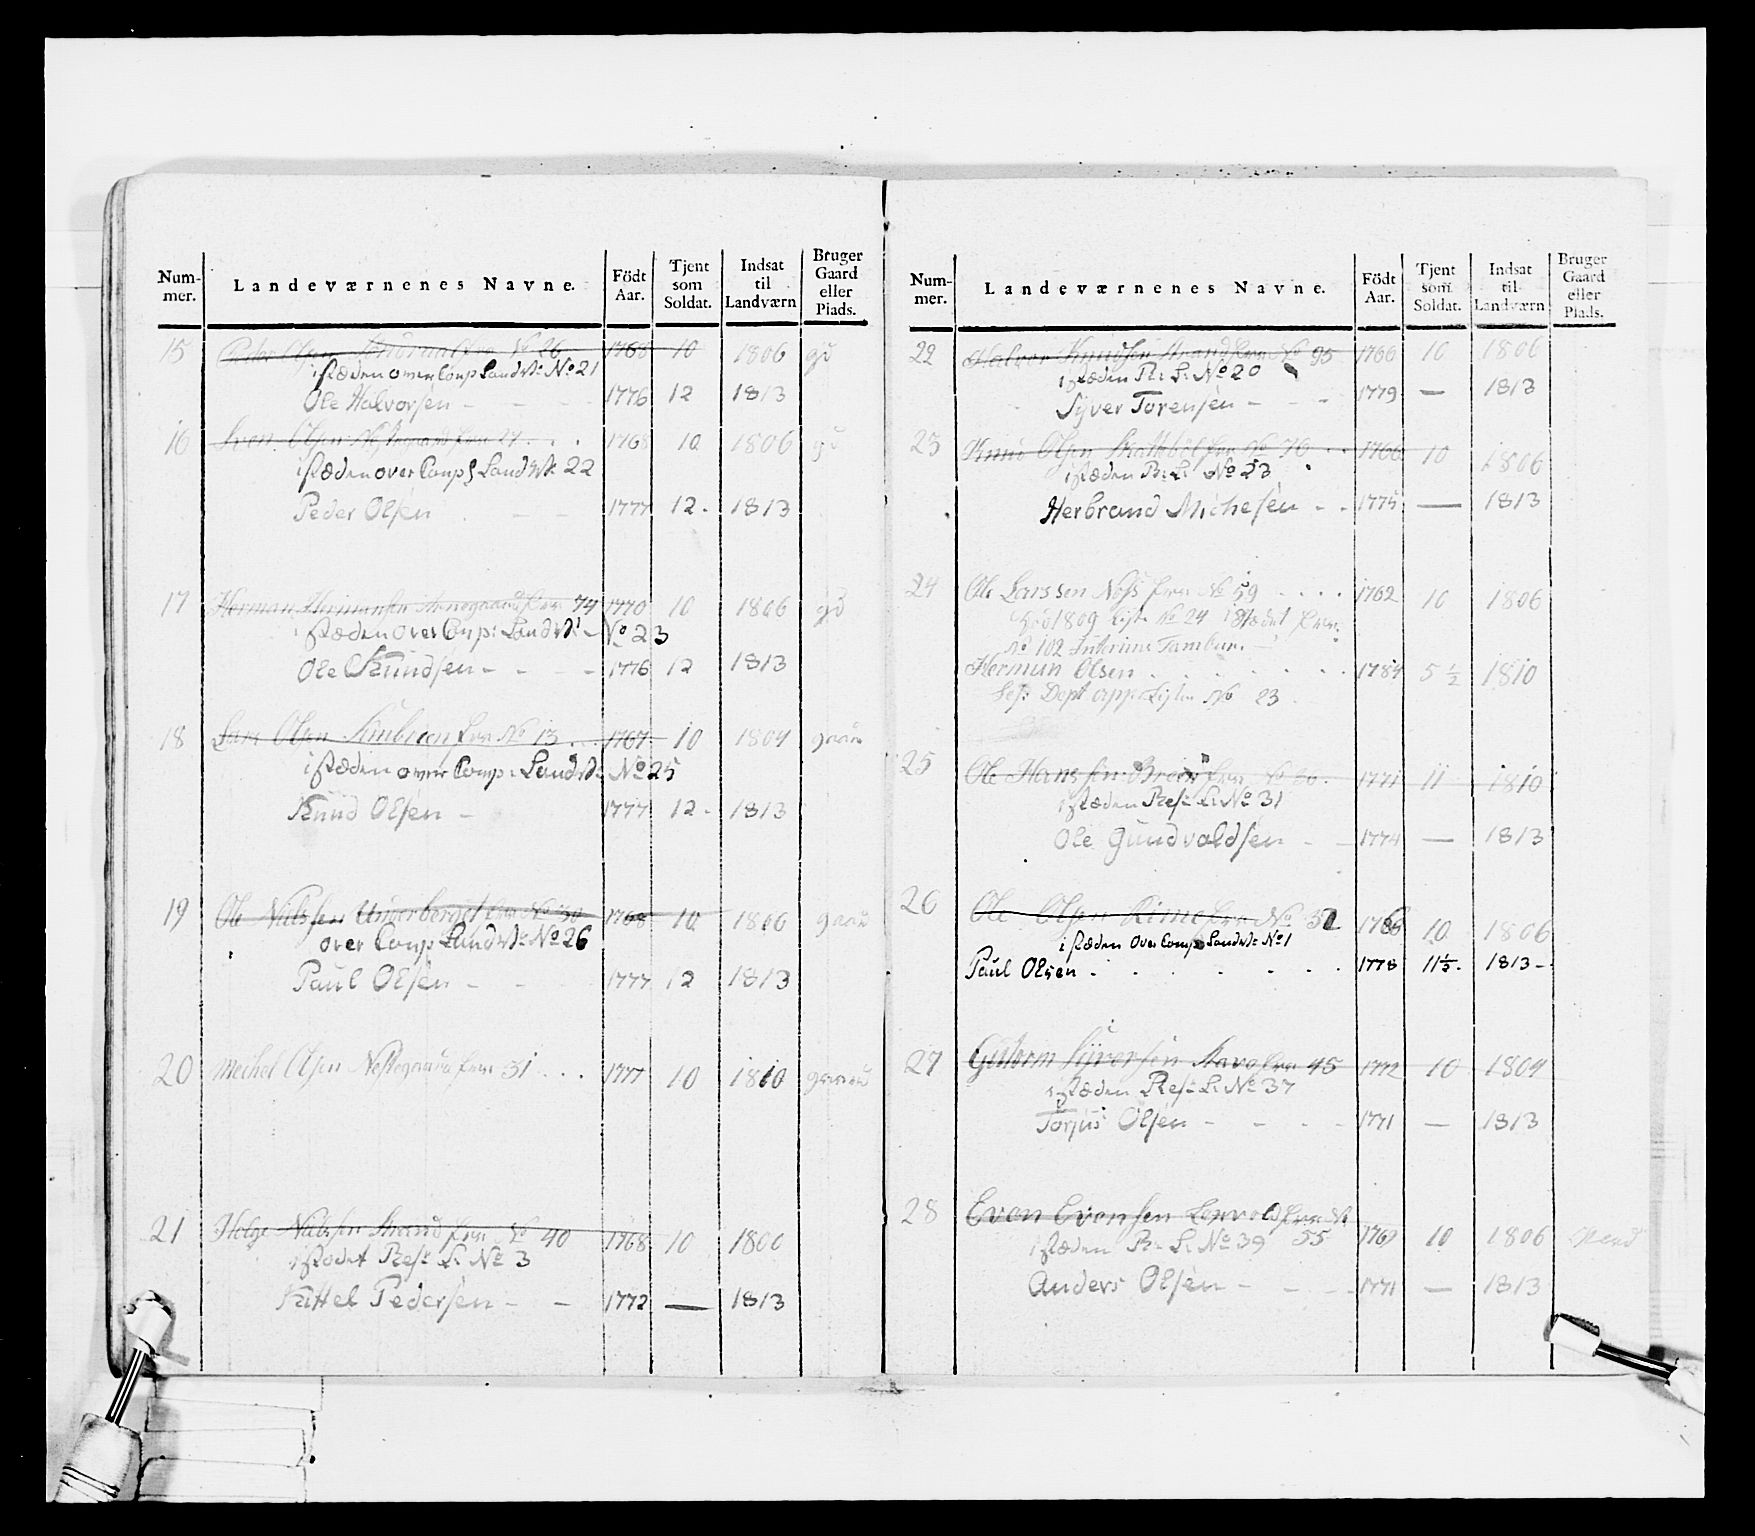 Num-
mer.
Landeværnenes Navne.
Födt
Aar.
Tjent
som
Soldat.
Indsat
til
Landværn
Bruger
Gaard
eller
Plads.
15 Peder Olsen fra No 26 1768 10 1806 gd
istæden over Comp Landv: No 21
Ole Halvorsen - - - 1776 12 1813
16 Sven Olsen fra 27 . . . 1768 10 1806 gd
istæden over Comp Landv 22
Peder Olsen - - 1777 12. 1813
17 Herman Hermansen fra 74 1770 10 1806 gd
istæden over Comp: Landv: No 23
Ole Knudsen - - - 1776 12 1813
18 Lars Olsen fra No 13 . . 1767 10 1804 gaard
istæden over Comp: Landv: No 25
Knud Olsen - 1777 12. 1813
19 Ole Nielssen Underberget fra No 30 1768 10 1806 gaard
over Comp Landv: No 26
Paul Olsen - - 1777 12 1813
20 Michel Olsen Nestegaard fra 31 . . . 1777 10 1810 gaard
21 Helge Nielssen Strand fra No 40 1768 10 1806
istædet Res: L: No 3
Kittel Pedersen - - 1772 — 1813
Num-
mer.
Landeværnenes Navne.
Födt
Aar.
Tjent
som
Soldat.
Indsat
til
Landværn
Bruger
Gaard
eller
Plads.
22 Halvor Knudsen Strand fra No 95 1766 10 1806
istæden R: L: No 20
Syver Torensen - - - 1779 — 1813
23 Knud Olsen fra No 70 . . 1766 10 1806
istæden R: L: No 23
Herbrand Michelsen - - 1775 — 1813
24 Ole Larssen Næss fra No 59 . . . . 1762 10 1806
1809 Liste No 24 istædet fra
No 102 Interims Tambur.
Herman Olsen . . . . . . 1784 5 ½ 1810
Dept app: Liste No 23
25 Ole Hanssen fra No 80. 1771 11 1810
istæden Res: L: No 31
Ole Gundvaldsen - - 1774 — 1813
26 Ole Olsen fra No 52 1766 10 1806
istæden Over Comp: Landv: No 1
Paul Olsen . . . . . . . 1778 11⅓. 1813-
27 Guttorm Syversen fra 45 1772 10 1804
istæden Res: L: No 37
Torjus Olsen - - - - 1771 — 1813
28 Even Evensen fra No 55 1769 10 1806
istæden R: L: No 39
Anders Olsen - - - 1771 — 1813